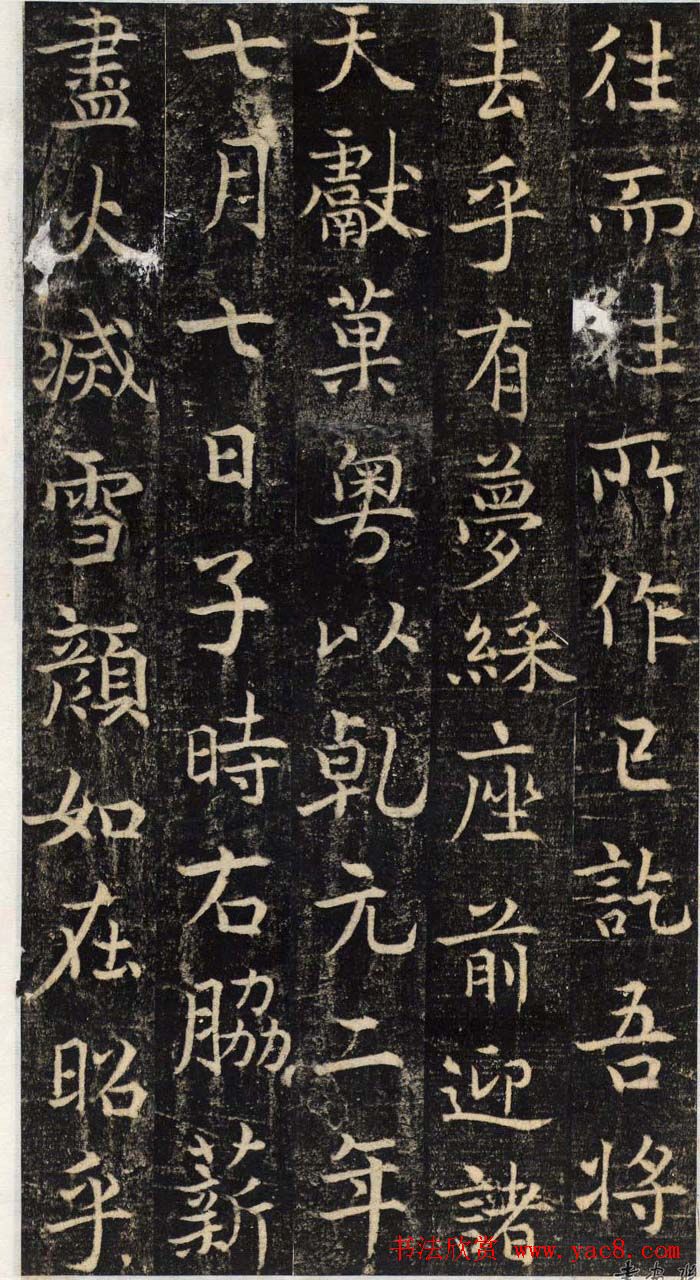 往而往所作已訖吾將
去乎有夢綵座前迎諸
天獻菓粵以乾元二年
七月七日子時右脇薪
盡火滅雪顏如在昭乎
书法欣赏 www.yac8.com